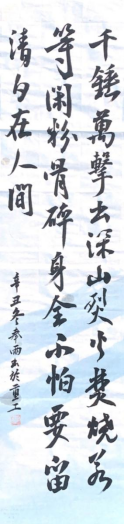 千錘萬擊出深山烈火焚燒若
等閑粉骨碎身全不怕要留
清白在人間
辛丑冬